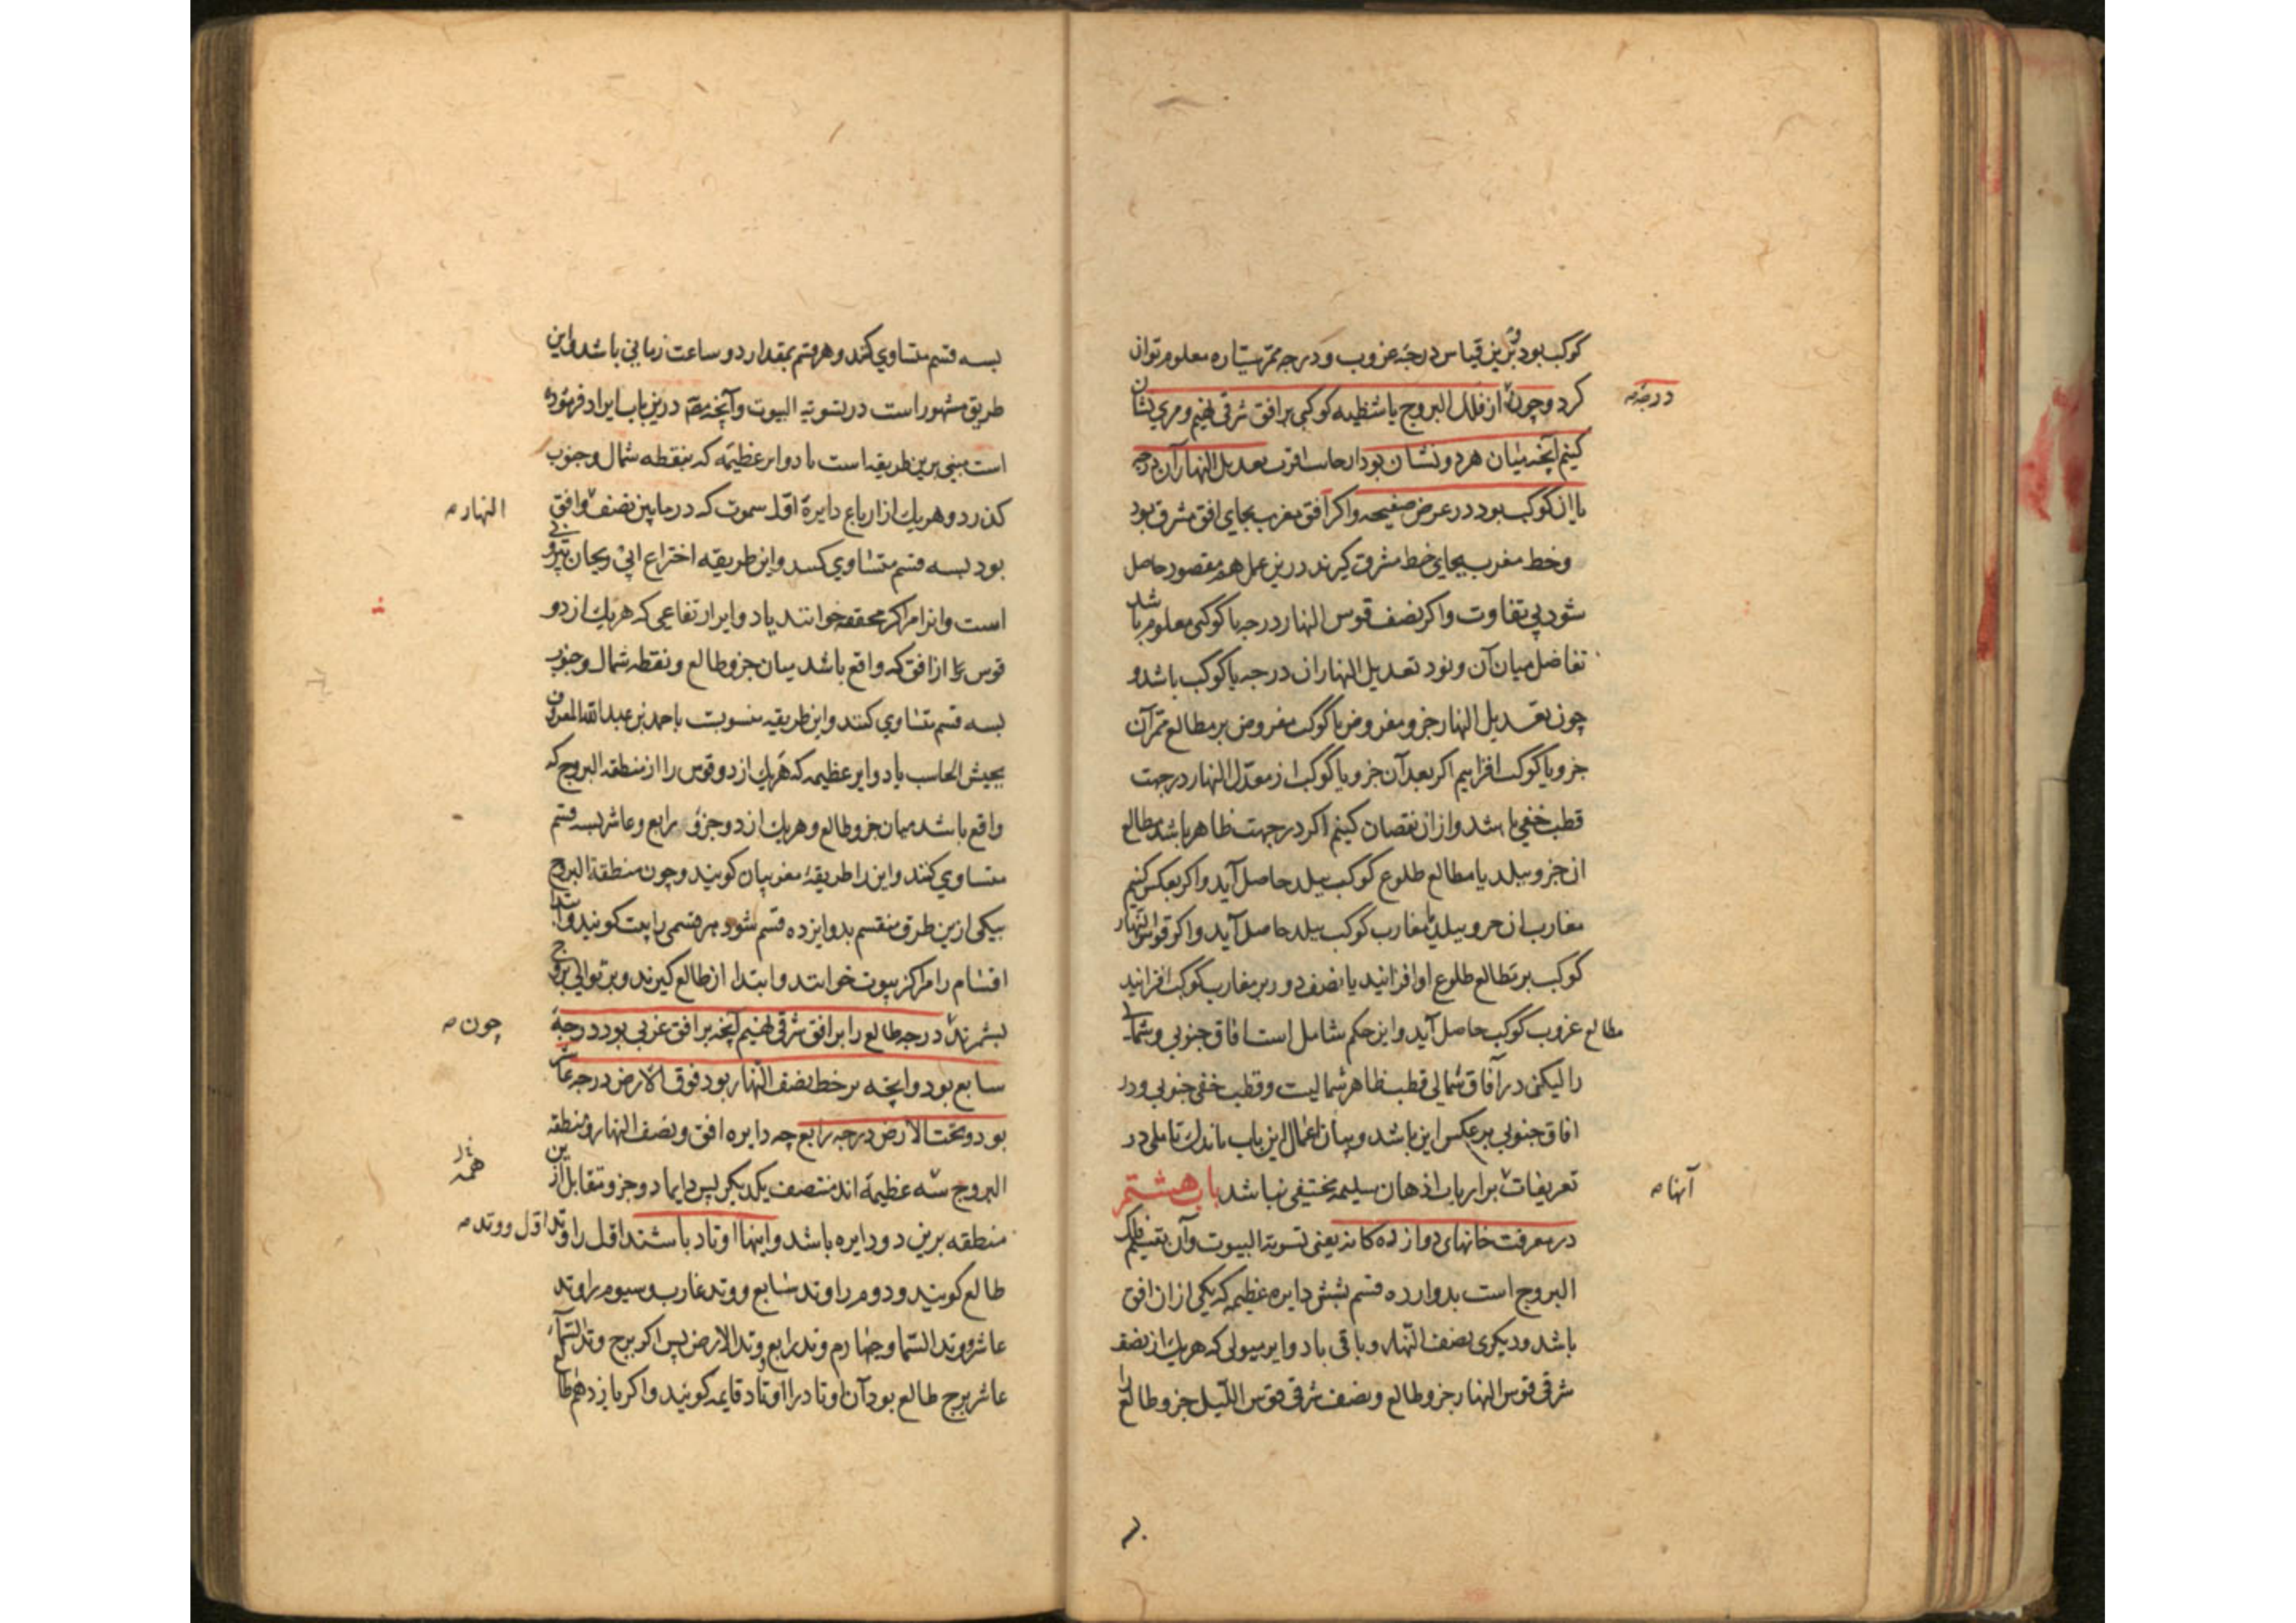 کوکب بود و برین قیاس درجهٔ غروب و درجه ممر ستاره معلوم توان
کرد و چون از فلک البروج یا شظیه کوکبی بر افق شرقی نهیم و مری نشان
درجه
کنیم آنچه میان هر دو نشان بود از جانب اقرب تعدیل النهار آن درجه
یا آن کوکب بود در عرض صفیحه و اکر افق مغرب بجای افق مشرق بود
و خط مغرب بجای خط مشرق کیرند درین عمل هم مقصود حاصل
شود بی تفاوت و اکر نصف قوس النهار درجه یا کوکبی معلوم باشد
تفاضل میان آن و نود تعدیل النهار آن درجه یا کوکب باشد و
چون تعدیل النهار جزو مفروض یا کوکب مفروض بر مطالع ممر آن
جزو یا کوکب افزاییم اکر بعد آن جزو یا کوکب از معدل النهار در جهت
قطب خفی باشد و از آن نقصان کنیم اکر در جهت ظاهر باشد مطالع
آن جزو ببلد یا مطالع طلوع کوکب ببلد حاصل آید و اکر بعکس کنیم
مغارب آن جزو ببلد یا مغارب کوکب ببلد حاصل آید و اکر قوس النهار
کوکب بر مطالع طلوع او افزایند یا نصف دور بر مغارب کوکب افزایند
مطالع غروب کوکب حاصل آید و این حکم شامل است آفاق جنوبی و شمالی
را لیکن در آفاق شمالی قطب ظاهر شمالیست و قطب خفی جنوبی و در
آفاق جنوبی برعکس این باشد و بیان اعمال این باب باندک تاملی در
تعریفات بر ارباب اذهان سلیمه مختفی نباشد باب هشتم
آنها
در معرفت خانهای دوازده کانه یعنی تسویة البیوت و آن تقسیم فلک
البروج است بدوازده قسم بشش دایره عظیمه که یکی از آن افق
باشد و دیکری نصف النهار و باقی بادوایر میولی که هر یک از نصف
شرقی قوس النهار جزو طالع و نصف شرقی قوس اللیل جزو طالع را
بسه قسم متساوی کنند و هر قسم بمقدار دو ساعت زمانی باشد و این
طریق مشهور است در تسویة البیوت و آنچه مصّ درین باب ایراد فرموده
است مبنی برین طریقه است یا دوایر عظیمه که بنقطه شمال و جنوب
کذرد و هر یک از ارباع دایرة اول سموت که در مابین نصف و افق
النهار
بود بسه قسم متساوی کند و این طریقه اختراع ابی ریحان بیرونی
است و انرا مراکز محققه خوانند یا دوایر ارتفاعی که هر یک از دو
قوس را از افق که واقع باشد میان جزو طالع و نقطه شمال و جنوب
بسه قسم متساوی کنند و این طریقه منسوبست باحمد بن عبدالله المعروف
بحبش الحاسب یا دوایر عظیمه که هر یک از دو قوس را از منطقه البروج که
واقع باشد میان جزو طالع و هر یک از دو جزو رابع و عاشر بسه قسم
متساوی کنند و این را طریقهٔ مغربیان کویند و چون منطقة البروج
بیکی از ین طرق منقسم بدوازده قسم شود هر قسمی را بیت کویند و ابتدا
اقسام را مراکز بیوت خوانند و ابتدا از طالع کیرند و بر توالی بروج
بشمرند درجه طالع را بر افق شرقی نهیم آنچه بر افق غربی بود درجهٔ
چون
سابع بود و آنچه بر خط نصف النهار بود فوق الارض درجه عاشر
بود و تحت الارض درجه رابع چه دایره افق و نصف النهار و منطقه
البروج سه عظیمه اند منتصف یکدیکر پس دایما دو جزو متقابل از
منطقه برین دو دایره باشد و اینها اوتاد باشند اول را وتد
اول و وتد
طالع کویند و دوم را وتد سابع و وتد غارب و سیوم را وتد
عاشر و وتد السما و چهارم وتد رابع و وتد الارض پس اکر برج وتد السماء
عاشر برج طالع بود آن اوتاد را اوتاد قایمه کویند و اکر یازدهم طالع